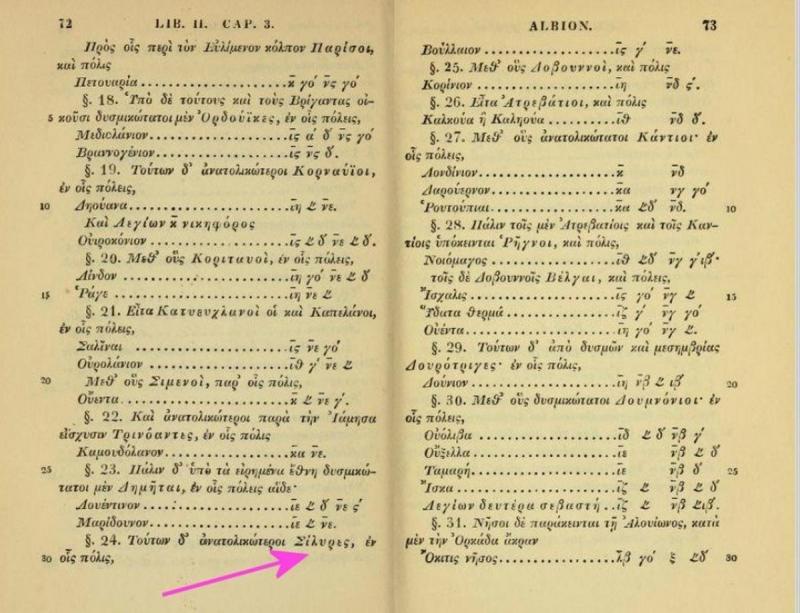 72 LIB. II. CAP. 3.
Πρὸς οἷς περὶ τὸν Εὐλίμενον κόλπον Παρίσοι,
καὶ πόλις
Πετουαρία ..... κ̄ γο′ ν̄ς γο′
§. 18. Ὑπὸ δὲ τούτους καὶ τοὺς Βρίγαντας οἰ-
5 κοῦσι δυσμικώτατοι μὲν Ὀρδούϊκες, ἐν οἷς πόλεις,
Μεδιολάνιον ..... ῑς 𐅵′ δ′ ν̄ς γο′
Βραννογένιον ..... ῑς ν̄ς δ′.
§. 19. Τούτων δ' ἀνατολικώτεροι Κορναύϊοι,
ἐν οἷς πόλεις,
10 Δηούανα ..... ῑη 𐅵 ν̄ε.
Καὶ Λεγίων κ̄ νικηφόρος
Οὐιροκόνιον ..... ῑς 𐅵 δ′ ν̄ε 𐅵 δ′.
§. 20. Μεθ' οὓς Κοριτανοὶ, ἐν οἷς πόλεις,
Λίνδον ..... ῑη γο′ ν̄ε 𐅵 δ′
15 Ῥάγε ..... ῑη ν̄ε 𐅵
§. 21. Εἶτα Κατυευχλανοὶ οἱ καὶ Καπελάνοι,
ἐν οἷς πόλεις,
Σαλῖναι ..... ῑς ν̄ε γο′
Οὐρολάνιον ..... ῑθ γ′ ν̄ε 𐅵
20 Μεθ' οὓς Σιμενοὶ, παρ' οἷς πόλις,
Οὔεντα ..... κ̄ 𐅵 ν̄ε γ′.
§. 22. Καὶ ἀνατολικώτεροι παρὰ τὴν Ἰάμησα
εἴσχυσιν Τρινόαντες, ἐν οἷς πόλις
Καμουδόλανον ..... κ̄α ν̄ε.
25 §. 23. Πάλιν δ' ὑπὸ τὰ εἰρημένα ἔθνη δυσμικώ-
τατοι μὲν Δημῆται, ἐν οἷς πόλεις αἵδε·
Λουέντινον ..... ῑε 𐅵 δ′ ν̄ε ς′
Μαρίδουνον ..... ῑε 𐅵 ν̄ε.
§. 24. Τούτων δ' ἀνατολικώτεροι Σίλυρες, ἐν
30 οἷς πόλις,
ALBION. 73
Βούλλαιον ..... ῑς γ′ ν̄ε.
§. 25. Μεθ' οὓς Δοβουννοὶ, καὶ πόλις
Κορίνιον ..... ῑη ν̄δ ς′.
§. 26. Εἶτα Ἀτρεβάτιοι, καὶ πόλις
Καλκούα ἢ Καληούα ..... ῑθ ν̄δ δ′.
§. 27. Μεθ' οὓς ἀνατολικώτατοι Κάντιοι· ἐν
οἷς πόλεις,
Λονδίνιον ..... κ̄ ν̄δ
Δαρούερνον ..... κ̄α νγ γο′
Ῥουτούπιαι ..... κ̄α 𐅵δ′ ν̄δ. 10
§. 28. Πάλιν τοῖς μὲν Ἀτρεβατίοις καὶ τοῖς Καν-
τίοις ὑπόκεινται Ῥῆγνοι, καὶ πόλις,
Νοιόμαγος ..... ῑθ 𐅵δ′ ν̄γ γ′ιβ′·
τοῖς δὲ Δοβουννοῖς Βέλγαι, καὶ πόλεις,
Ἴσχαλις ..... ῑς γο′ ν̄γ 𐅵 15
Ὕδατα θερμά ..... ῑζ γ′ ν̄γ γο′
Οὔεντα ..... ῑη γο′ ν̄γ 𐅵.
§. 29. Τούτων δ' ἀπὸ δυσμῶν καὶ μεσημβρίας
Δουρότριγες· ἐν οἷς πόλις,
Δούνιον ..... ῑη ν̄β 𐅵 ιβ′ 20
§. 30. Μεθ' οὓς δυσμικώτατοι Δουμνόνιοι· ἐν
οἷς πόλεις,
Οὐόλιβα ..... ῑδ 𐅵 δ′ ν̄β γ′
Οὔξελλα ..... ῑε ν̄β 𐅵 δ′
Ταμαρή ..... ῑε ν̄β δ′ 25
Ἴσκα ..... ῑζ 𐅵 ν̄β 𐅵 δ′
Λεγίων δευτέρα σεβαστή .. ῑζ 𐅵 ν̄β 𐅵ιβ′.
§. 31. Νῆσοι δὲ παράκεινται τῇ Ἀλουίωνος, κατὰ
μὲν τὴν Ὀρκάδα ἄκραν
Ὄκιτις νῆσος ..... λ̄β γο′ ξ̄ 𐅵δ′ 30